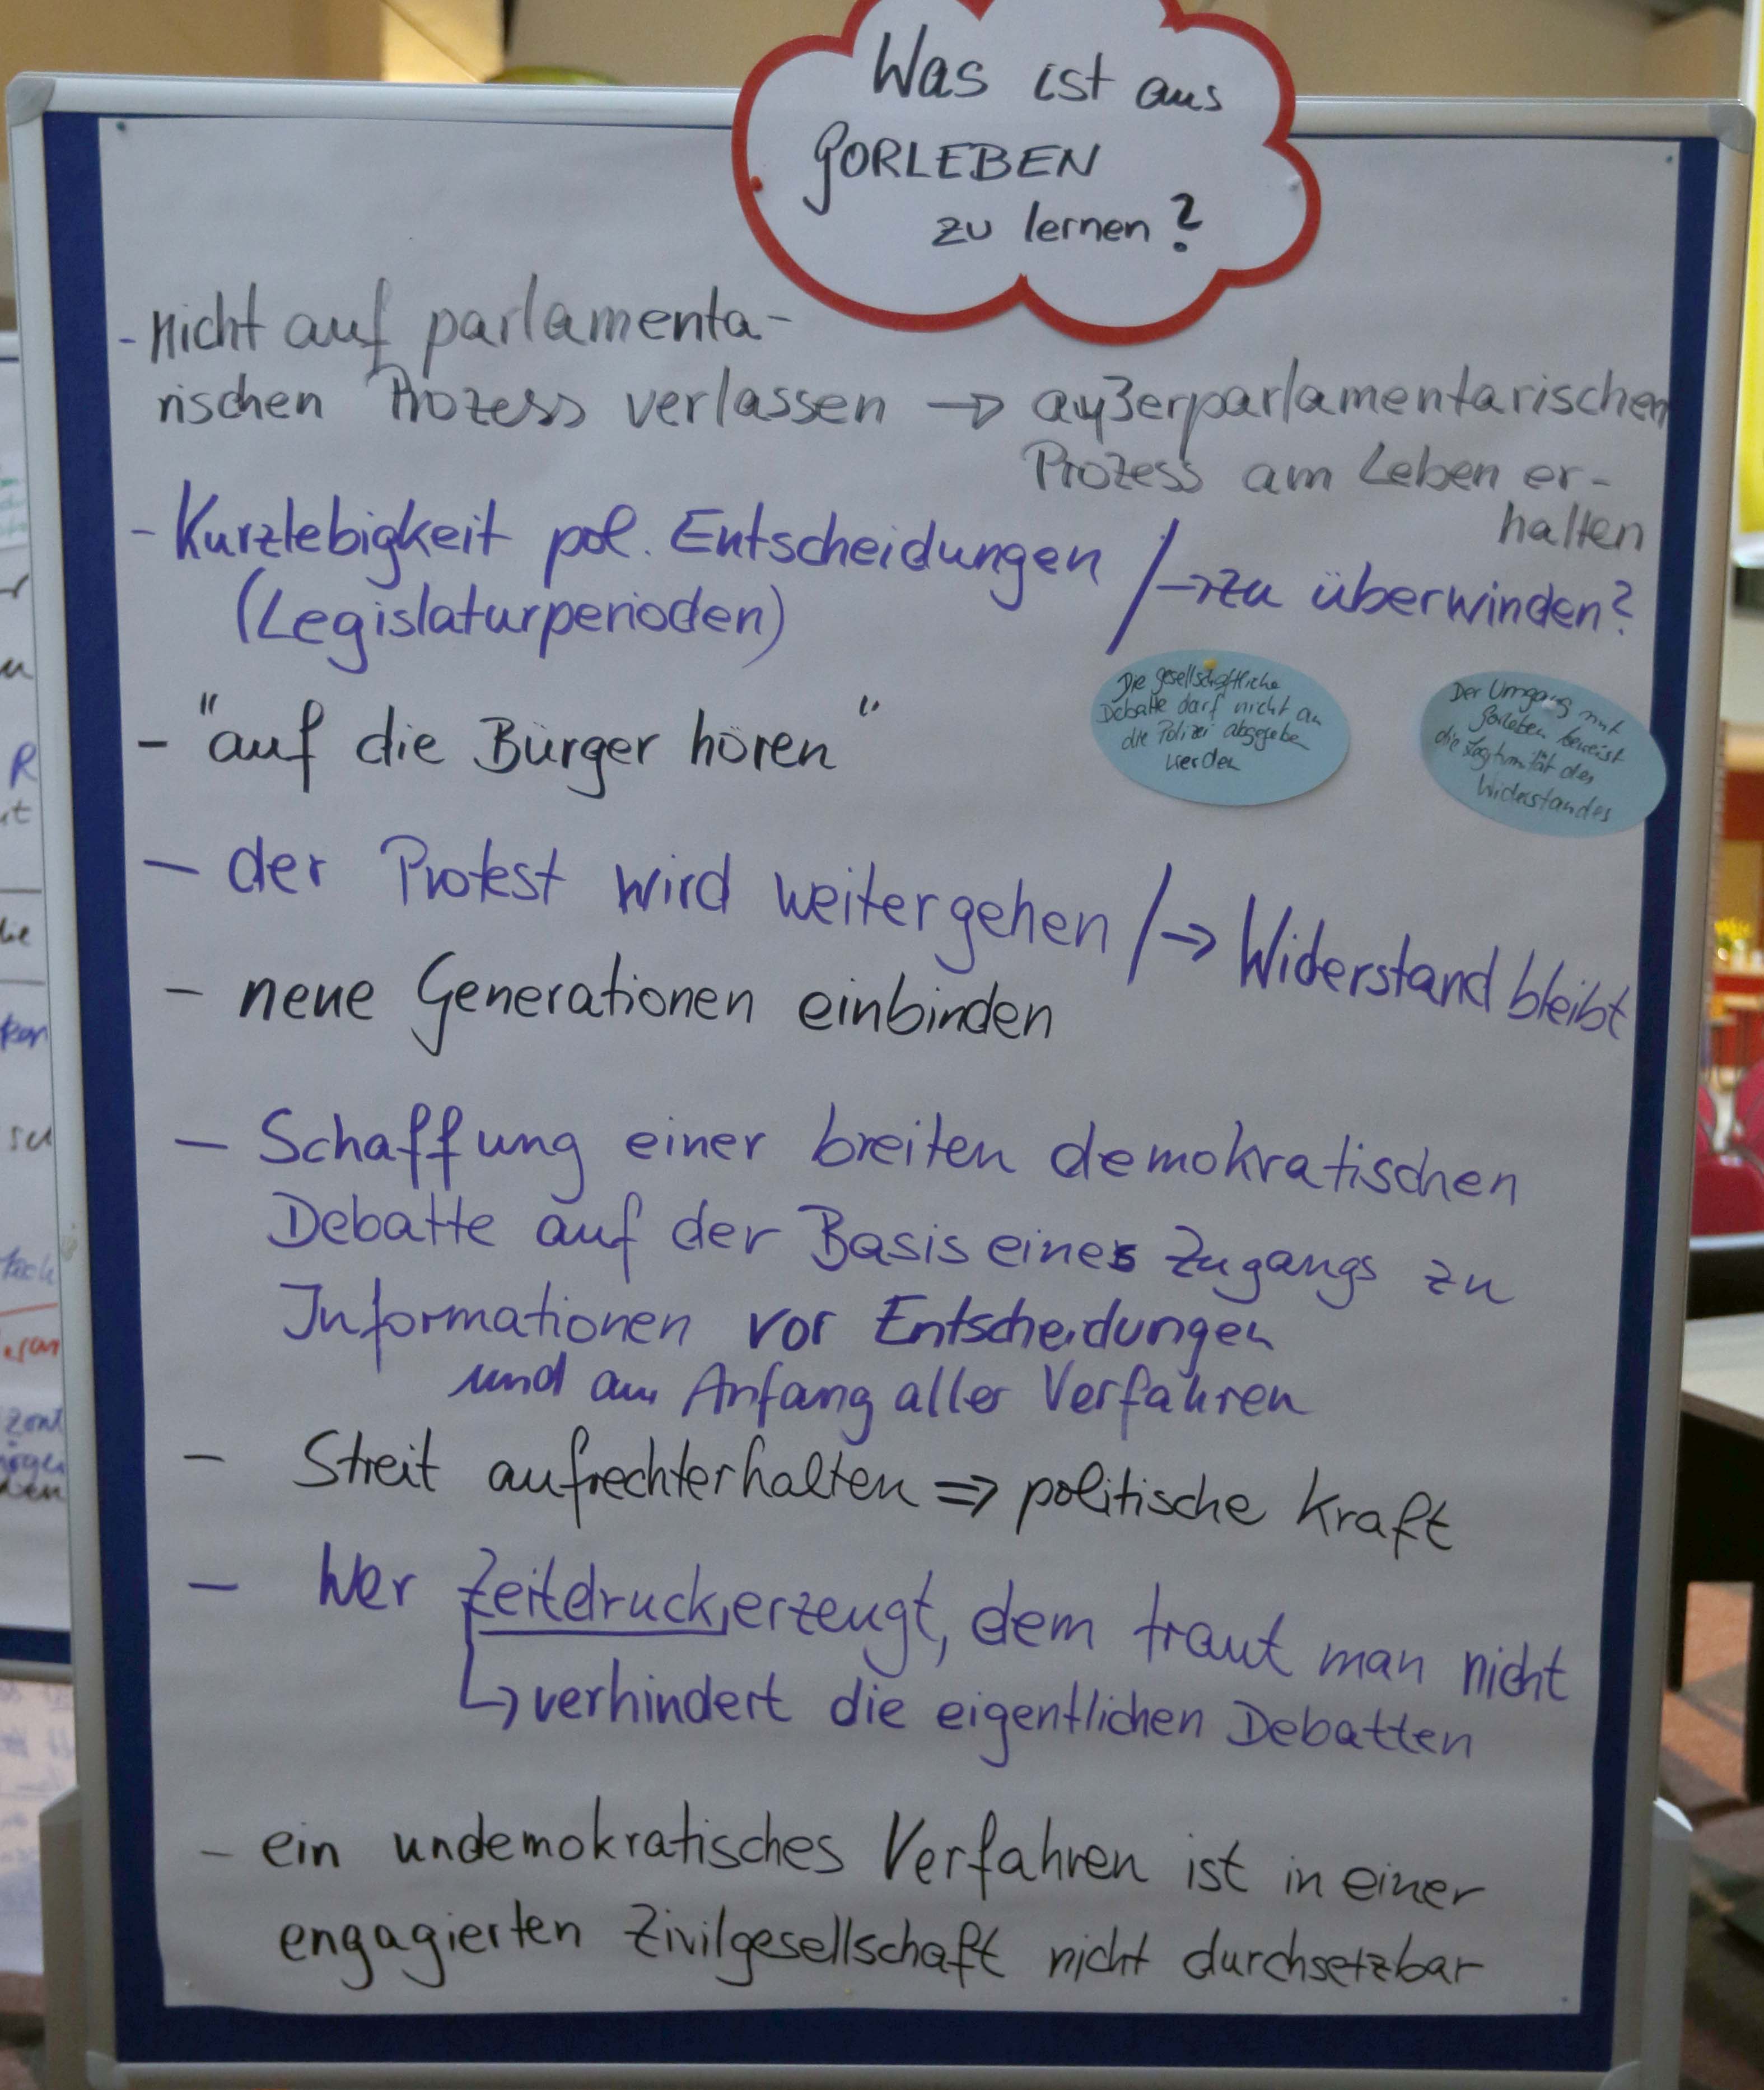 Was ist aus
GORLEBEN
zu lernen?
- nicht auf parlamenta-
rischen Prozess verlassen → außerparlamentarischen
Prozess am Leben er-
halten
- Kurzlebigkeit pol. Entscheidungen / → zu überwinden?
(Legislaturperioden)
- "auf die Bürger hören"
Die gesellschaftliche
Debatte darf nicht an
die Polizei abgegebe
werden
Der Umgang mit
Gorleben beweist
die Legitimität des
Widerstandes
- der Protest wird weitergehen / → Widerstand bleibt
- neue Generationen einbinden
- Schaffung einer breiten demokratischen
Debatte auf der Basis eines Zugangs zu
Informationen vor Entscheidungen
und am Anfang aller Verfahren
- Streit aufrechterhalten ⇒ politische Kraft
- Wer Zeitdruck, erzeugt, dem traut man nicht
↳ verhindert die eigentlichen Debatten
- ein undemokratisches Verfahren ist in einer
engagierten Zivilgesellschaft nicht durchsetzbar